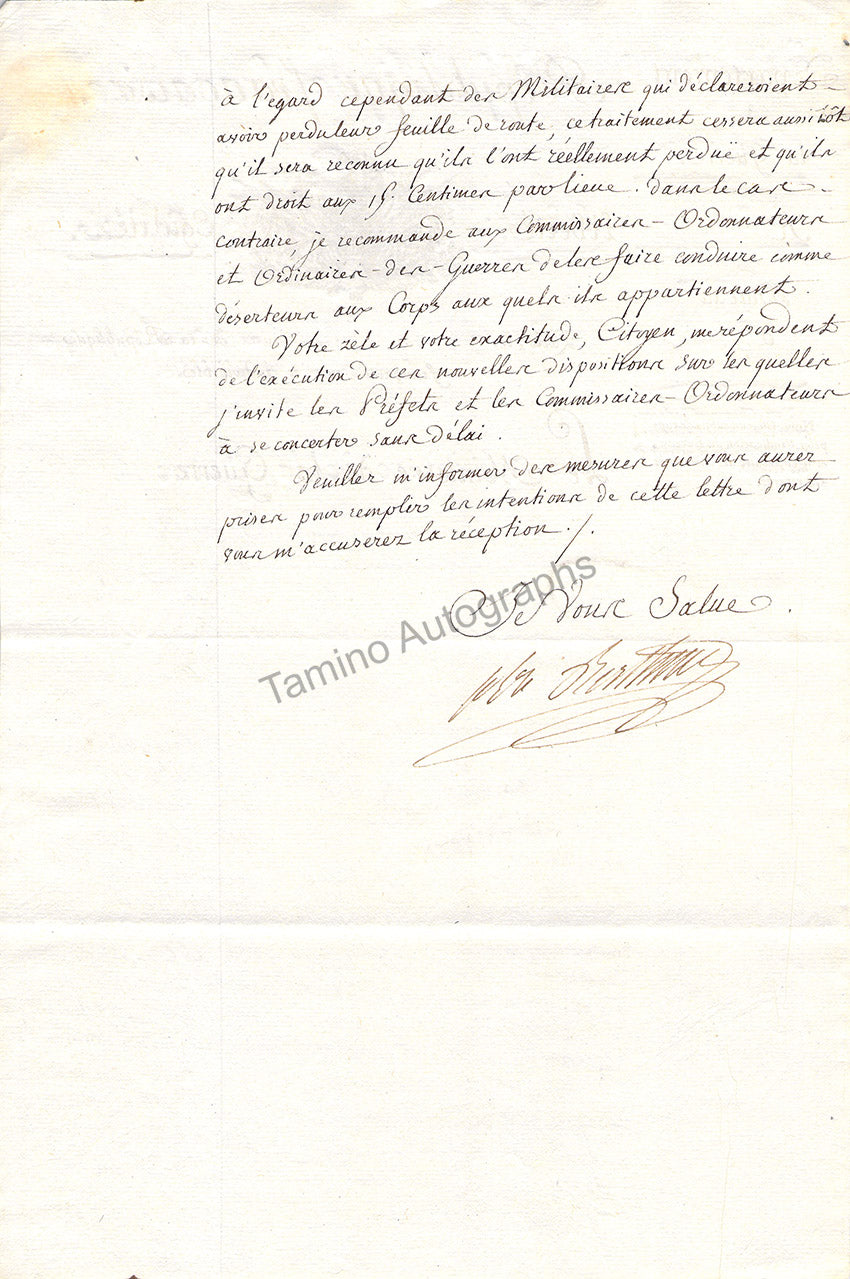 à l'egard cependant des Militaires qui déclareroient
avoir perdu leur feuille de route, ce traitement cessera aussitôt
qu'il sera reconnu qu'ils l'ont réellement perduë et qu'ils
ont droit aux 15. Centimes par lieue. dans le cas
contraire, je recommande aux Commissaires-Ordonnateurs
et Ordinaires-des-Guerres de les faire conduire comme
déserteurs aux Corps aux quels ils appartiennent.
Votre zèle et votre exactitude, Citoyen, me répondent
de l'exécution de ces nouvelles dispositions sur les quelles
j'invite les Préfets et les Commissaires-Ordonnateurs
à se concerter sans délai.
Veuillez m'informer des mesures que vous aurez
prises pour remplir les intentions de cette lettre dont
vous m'accuserez la réception ./.
Je Vous Salue.
Berthier
Tamino Autographs